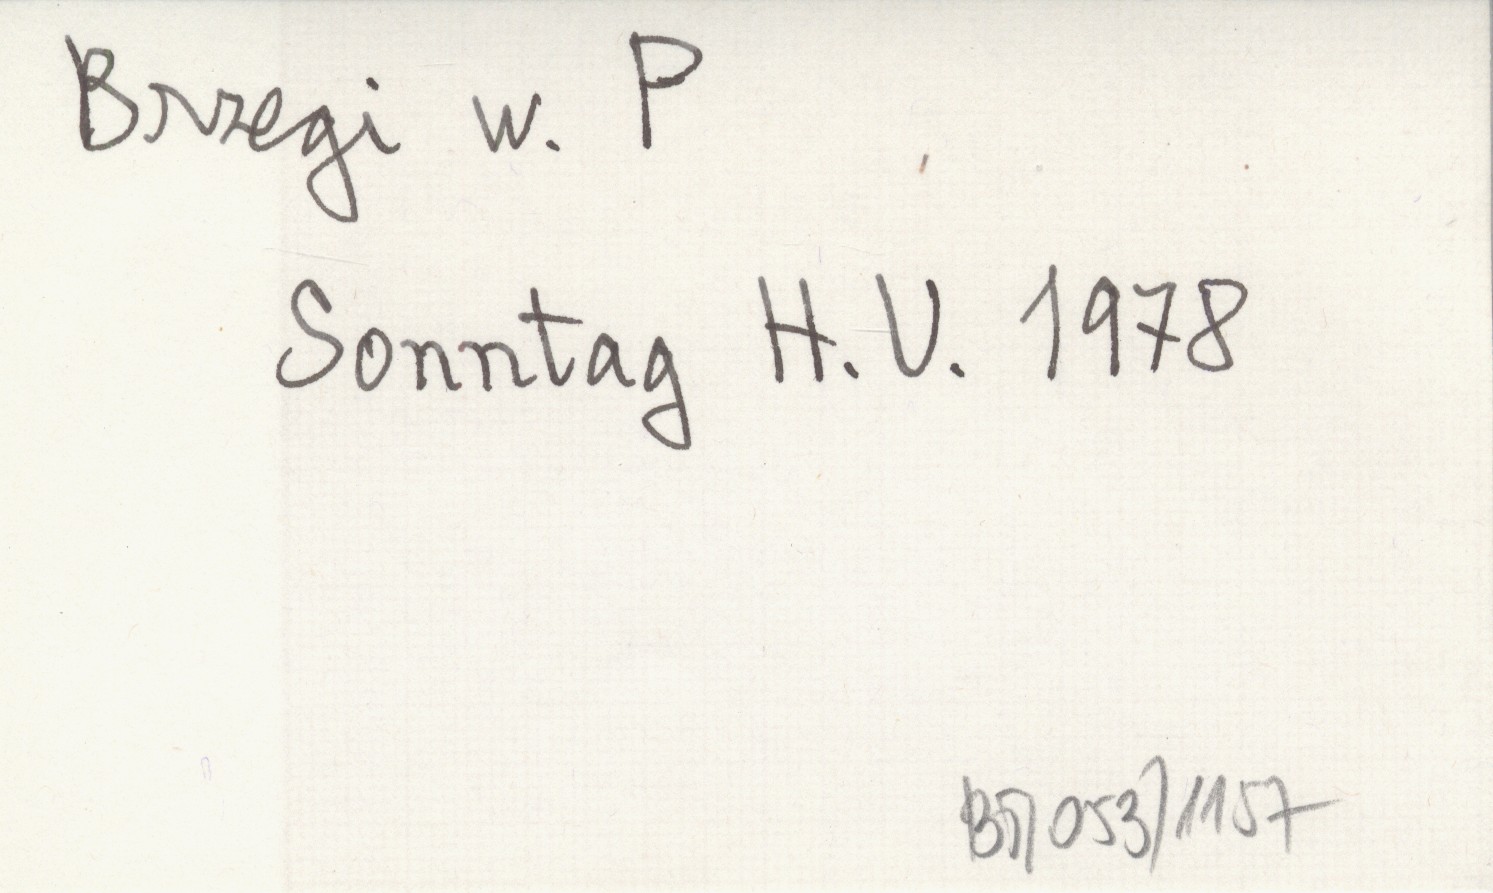 Brzegi w. P
Sonntag H.V. 1978
053/1157